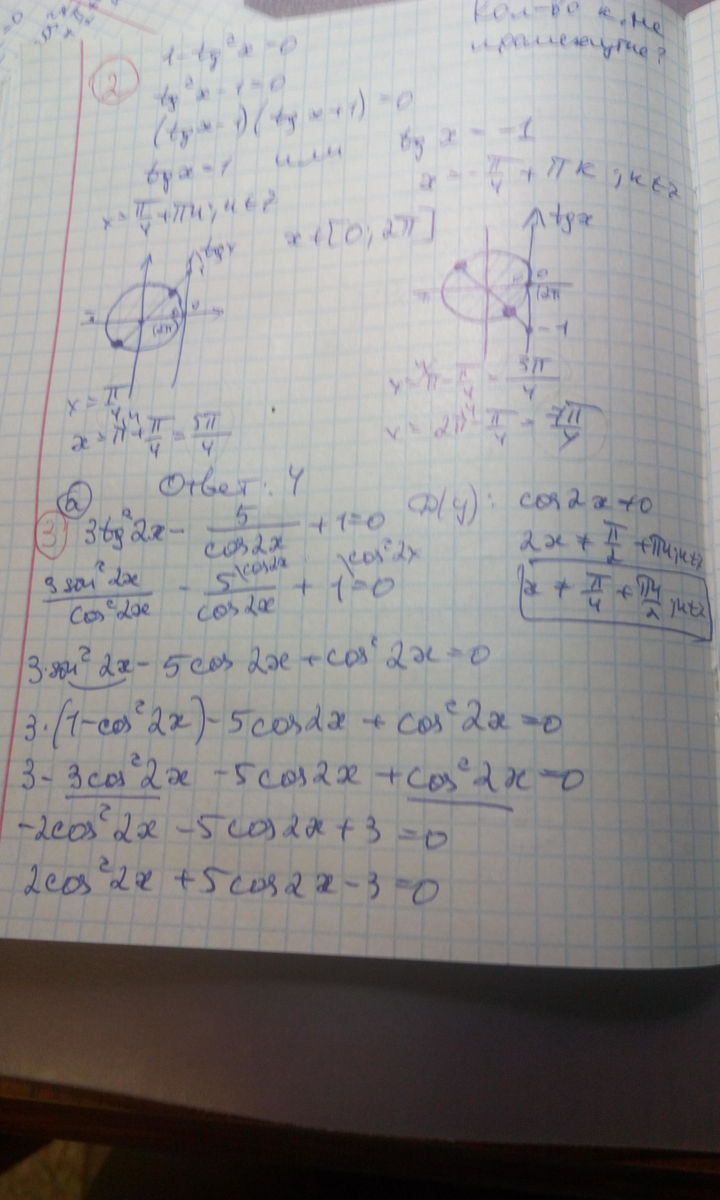 Кол-во к. не
промежутке?
② 1 - tg²x = 0
tg²x - 1 = 0
(tgx - 1)(tgx + 1) = 0
tgx = 1 или tgx = -1
x = π/4 + πn; n∈z x = -π/4 + πk; k∈z
x∈[0; 2π]
tgx tgx
π 0 2π π 0 2π
1 -1
x = π/4 x = π - π/4 = 3π/4
x = π + π/4 = 5π/4 x = 2π - π/4 = 7π/4
Ответ: 4
③ а 3tg²2x - 5/cos2x + 1 = 0 D(y): cos2x ≠ 0
2x ≠ π/2 + πn; n∈z
3sin²2x/cos²2x - 5\cos2x/cos2x + 1\cos²2x = 0 x ≠ π/4 + πn/2; n∈z
3·sin²2x - 5cos2x + cos²2x = 0
3·(1-cos²2x) - 5cos2x + cos²2x = 0
3 - 3cos²2x - 5cos2x + cos²2x = 0
-2cos²2x - 5cos2x + 3 = 0
2cos²2x + 5cos2x - 3 = 0